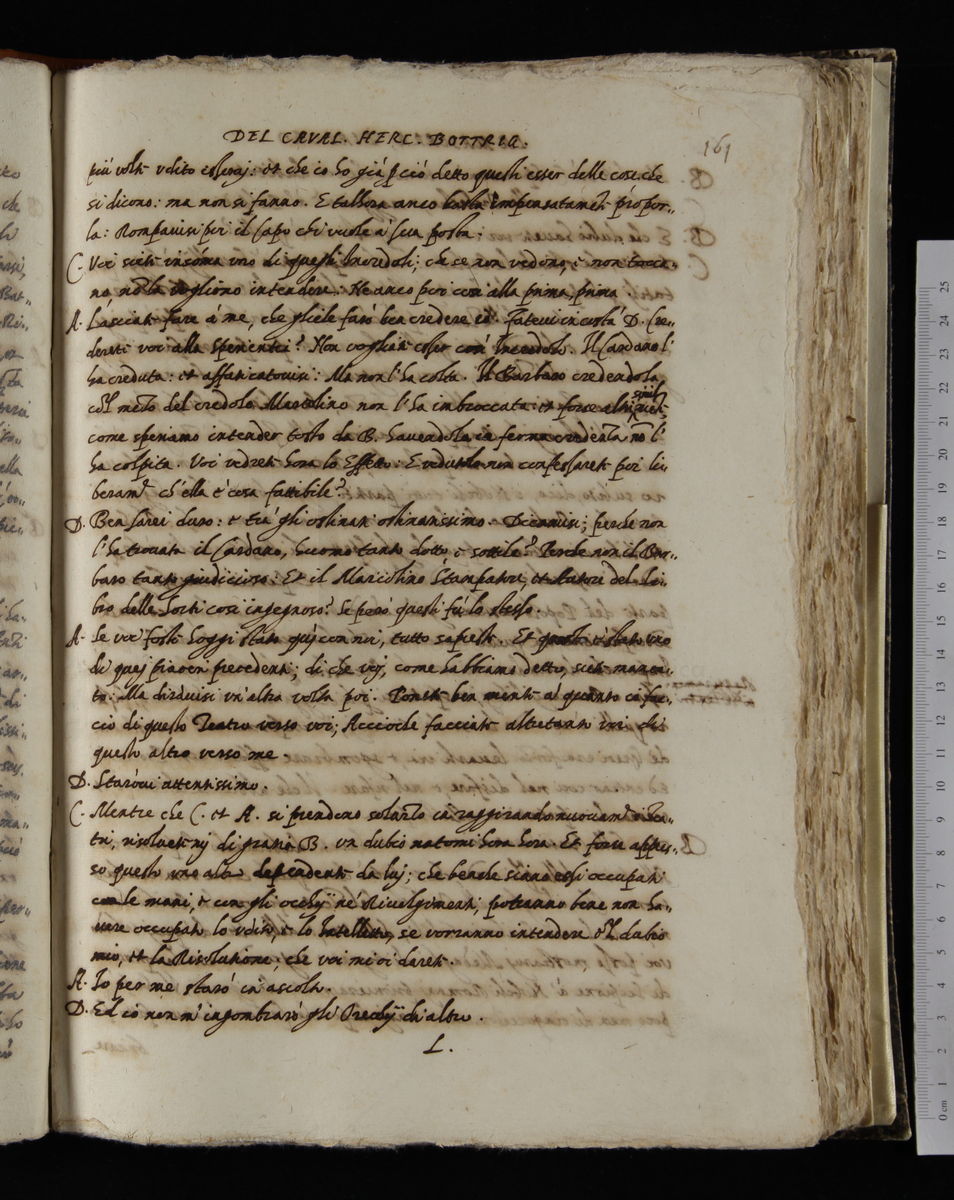 DEL CAVAL. HERC. BOTTRIG.
161
più volte vdito colevaj: et che io ho già p ciò detto questi esser delle cose, che
si dicono: ma non si fanno. E talhora anco impensatamente pro por„
la: Rompavisi poi il Capo chi vuole a sua posta.
C. Voi siete insóma vno di questi Increduli; che se non vedono, è non tocca„
no, nõ la vogliono intendere. Ne anco poi così alla prima, prima.
A. Lasciate fare à me, che gliele farò ben credere io. Fatevi in costà D. Cre„
derete voi alla Sperientia? Non vogliate esser così Incredolo. Il Cardano l'
ha creduta: et affaticatovisi: Ma non l'ha colta. Il Barbaro credendola
col mezo del credolo Marcolino non l'ha imbroccata: et forse altri
simil
come speriamo intender tosto da B. havendola in ferma credenza nõ l'
ha colpita. Voi vedrete hora lo Effetto: E vedutolo non confessarete poi li„
beram.te ch'ella è cosa fattibile?
D. Ben sarei duro: e trà gli ostinati ostinatissimo. Dicamisi; perche non
l'ha trovata il Cardano, huomo tanto dotto e sottile? Perche non il Bar„
baro tanto giudicioso: Et il Marcolino Stampatore, et Autore del Li„
bro delle Sorti così ingegnoso? Se però questi fù lo stesso.
A. Se voi foste hoggi stato quì con noi, tutto sapreste. Et questo è stato vno
di quej piaceri precedenti; di che voj, come habbiamo detto, siete manca„
to. Ma dirdvisi vn'altra volta poi. Ponete ben mente al quanto io fac„
cio di questo Teatro verso voi; Accioche facciate altretanto voi di
questo altro verso me.
D. Staròvi attentissimo.
C. Mentre che C. et A. si prendono solazzo in raggirando nuovam.te i Tea„
tri, risoluetemj di gratia B. vn dubio natomi hora hora. Et forse appres„
so questo vno altro dependente da luj; che benche siano essi occupati
con le mani, e con gli occhij ne' Rivolgimenti, potranno bene non ha„
uere occupato lo vdito, e lo Intelletto, se vorranno intendere et il dubio
mio, et la Risolutione; che voi mi ci darete.
A. Io per me starò in ascolto.
D. Ed io non m'ingombrarò gli Orechij ch'altro.
L.